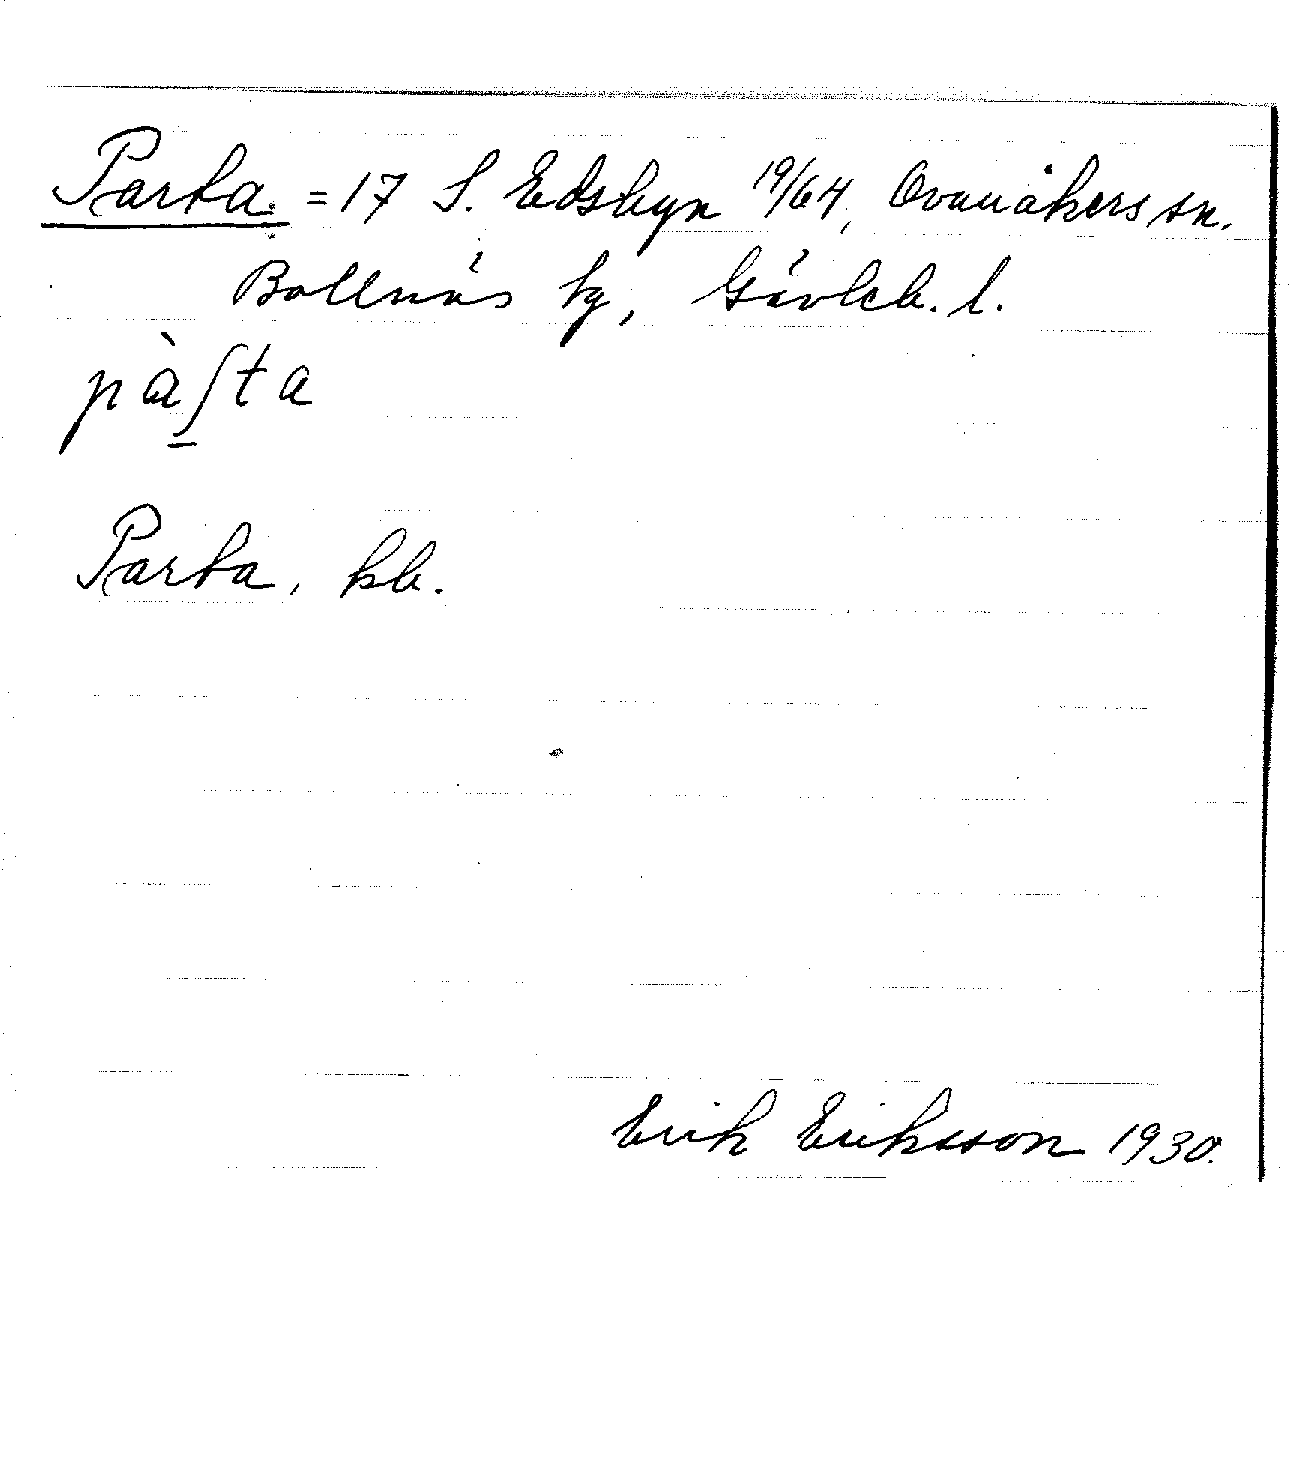 Parta. = 17 S. Edsbyn 19/64, Ovanåkers sn.
Bollnäs tg, Gävleb. l.
pàʃta
Parta, kb.
Erik Eriksson 1930.